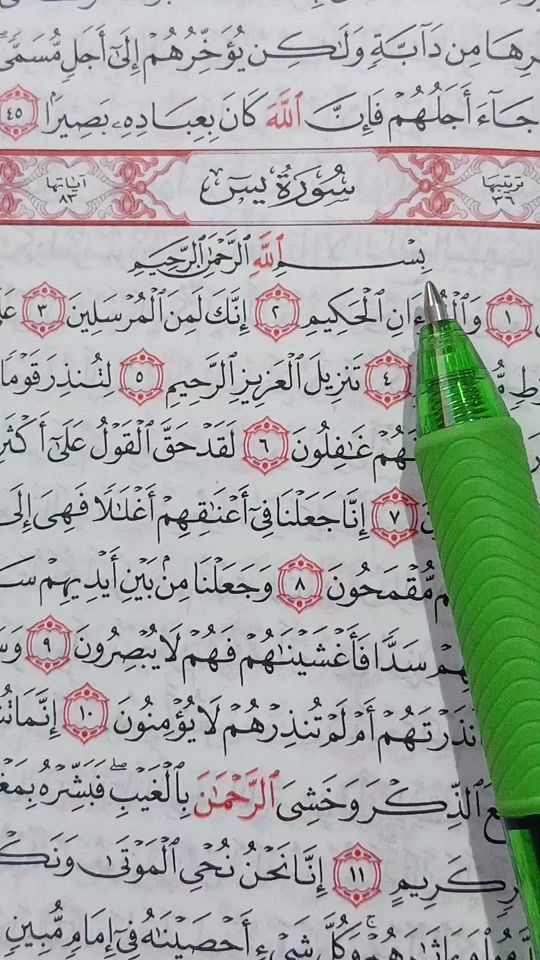 مِن دَآبَّةٍ وَلَٰكِن يُؤَخِّرُهُمْ إِلَىٰٓ أَجَلٍ مُّسَمًّى
جَآءَ أَجَلُهُمْ فَإِنَّ ٱللَّهَ كَانَ بِعِبَادِهِۦ بَصِيرًۢا ٤٥
ترتيبها ٣٦ سُورَةُ يسٓ آياتها ٨٣
بِسْمِ ٱللَّهِ ٱلرَّحْمَٰنِ ٱلرَّحِيمِ
١ ٱلْحَكِيمِ ٢ إِنَّكَ لَمِنَ ٱلْمُرْسَلِينَ ٣
٤ تَنزِيلَ ٱلْعَزِيزِ ٱلرَّحِيمِ ٥ لِتُنذِرَ قَوْمًا
غَٰفِلُونَ ٦ لَقَدْ حَقَّ ٱلْقَوْلُ عَلَىٰٓ
٧ إِنَّا جَعَلْنَا فِىٓ أَعْنَٰقِهِمْ أَغْلَٰلًا فَهِىَ إِلَى
مُّقْمَحُونَ ٨ وَجَعَلْنَا مِنۢ بَيْنِ أَيْدِيهِمْ
سَدًّا فَأَغْشَيْنَٰهُمْ فَهُمْ لَا يُبْصِرُونَ ٩
أَمْ لَمْ تُنذِرْهُمْ لَا يُؤْمِنُونَ ١٠
ٱلذِّكْرَ وَخَشِىَ ٱلرَّحْمَٰنَ بِٱلْغَيْبِ ۖ فَبَشِّرْهُ
كَرِيمٍ ١١ إِنَّا نَحْنُ نُحْىِ ٱلْمَوْتَىٰ
وَءَاثَٰرَهُمْ ۚ وَكُلَّ شَىْءٍ أَحْصَيْنَٰهُ فِىٓ إِمَامٍ مُّبِينٍ